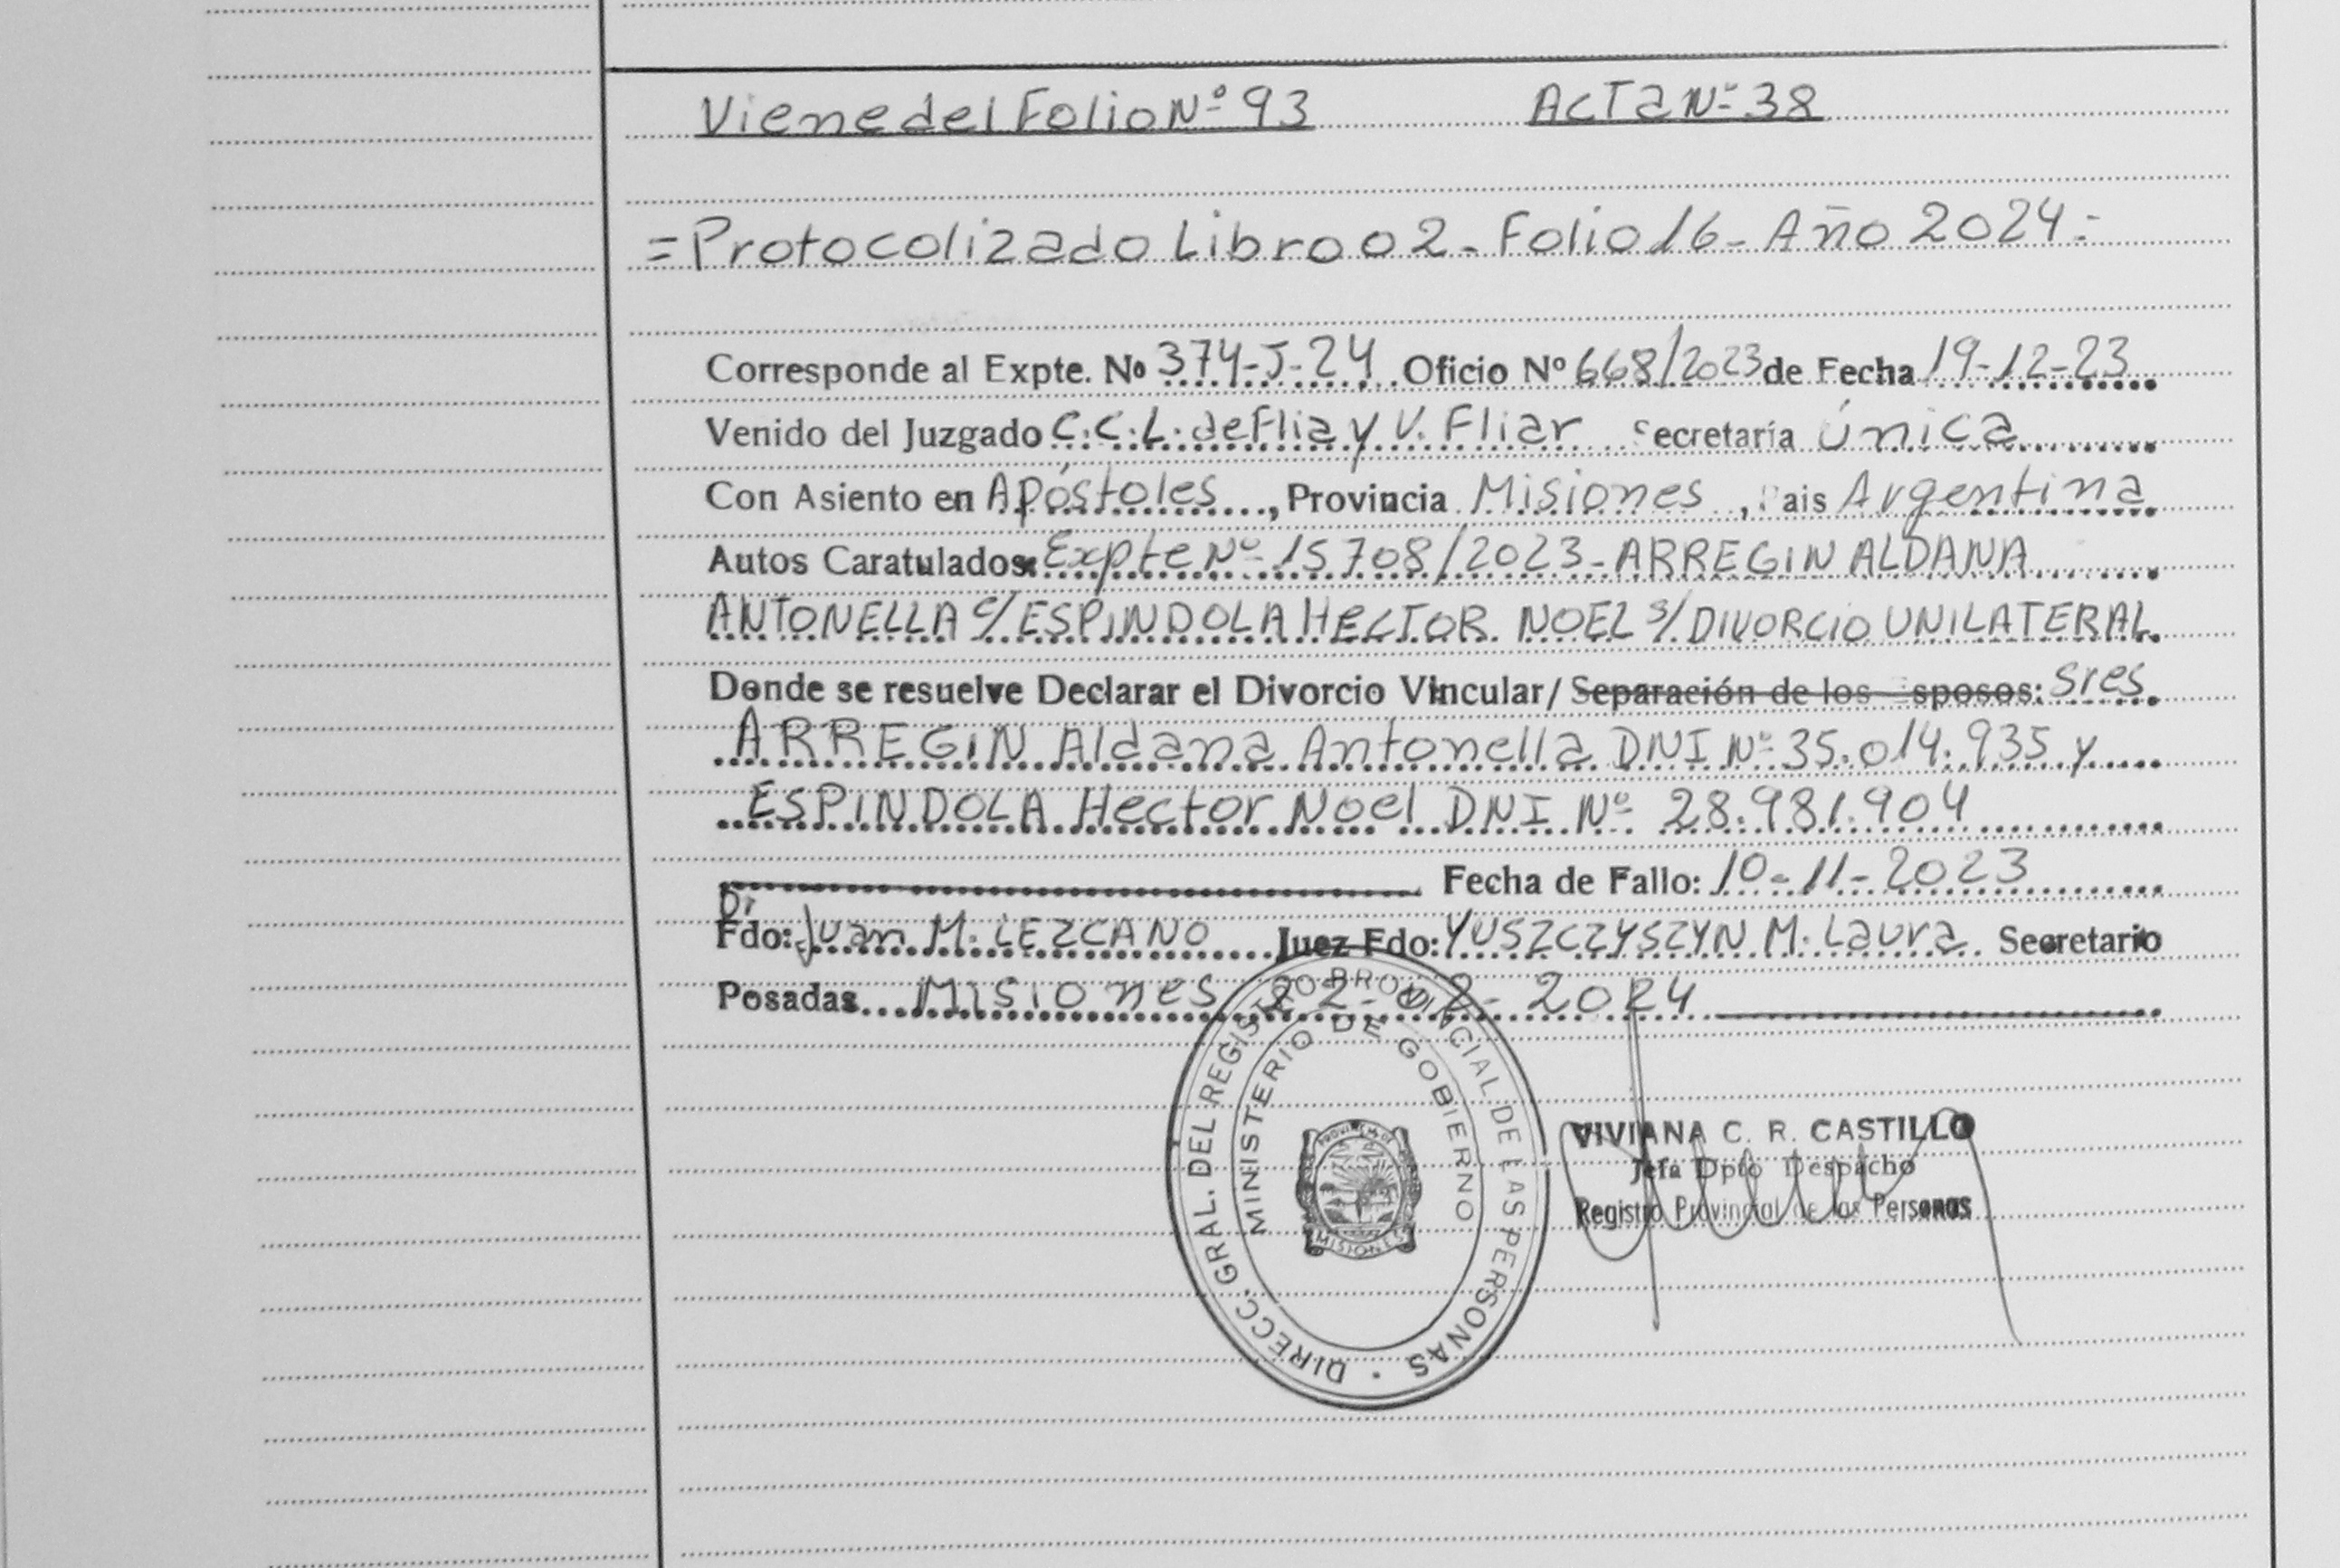 Viene del Folio Nº 93 ACTA Nº 38
= Protocolizado Libro 02 - Folio 16 - Año 2024 =
Corresponde al Expte. Nº 374-J-24 Oficio Nº 668/2023 de Fecha 19-12-23
Venido del Juzgado C.C.L. de Flia y V. Fliar Secretaría Única
Con Asiento en Apóstoles, Provincia Misiones, Pais Argentina
Autos Caratulados: Expte Nº 15708/2023 - ARREGIN ALDANA
ANTONELLA c/ ESPINDOLA HECTOR NOEL s/ DIVORCIO UNILATERAL
Donde se resuelve Declarar el Divorcio Vincular/ Separación de los Esposos: Sres
ARREGIN Aldana Antonella DNI Nº 35.014.935 y
ESPINDOLA Hector Noel DNI Nº 28.981.904
Fecha de Fallo: 10-11-2023
Dr
Fdo: Juan M. LEZCANO Juez Fdo: YUSZCZYSZYN M. Laura Secretario
Posadas Misiones 22-02-2024
DIRECC. GRAL. DEL REGISTRO PROVINCIAL DE LAS PERSONAS
MINISTERIO DE GOBIERNO
PROVINCIA DE
MISIONES
VIVIANA C. R. CASTILLO
Jefa Dpto Despacho
Registro Provincial de las Personas